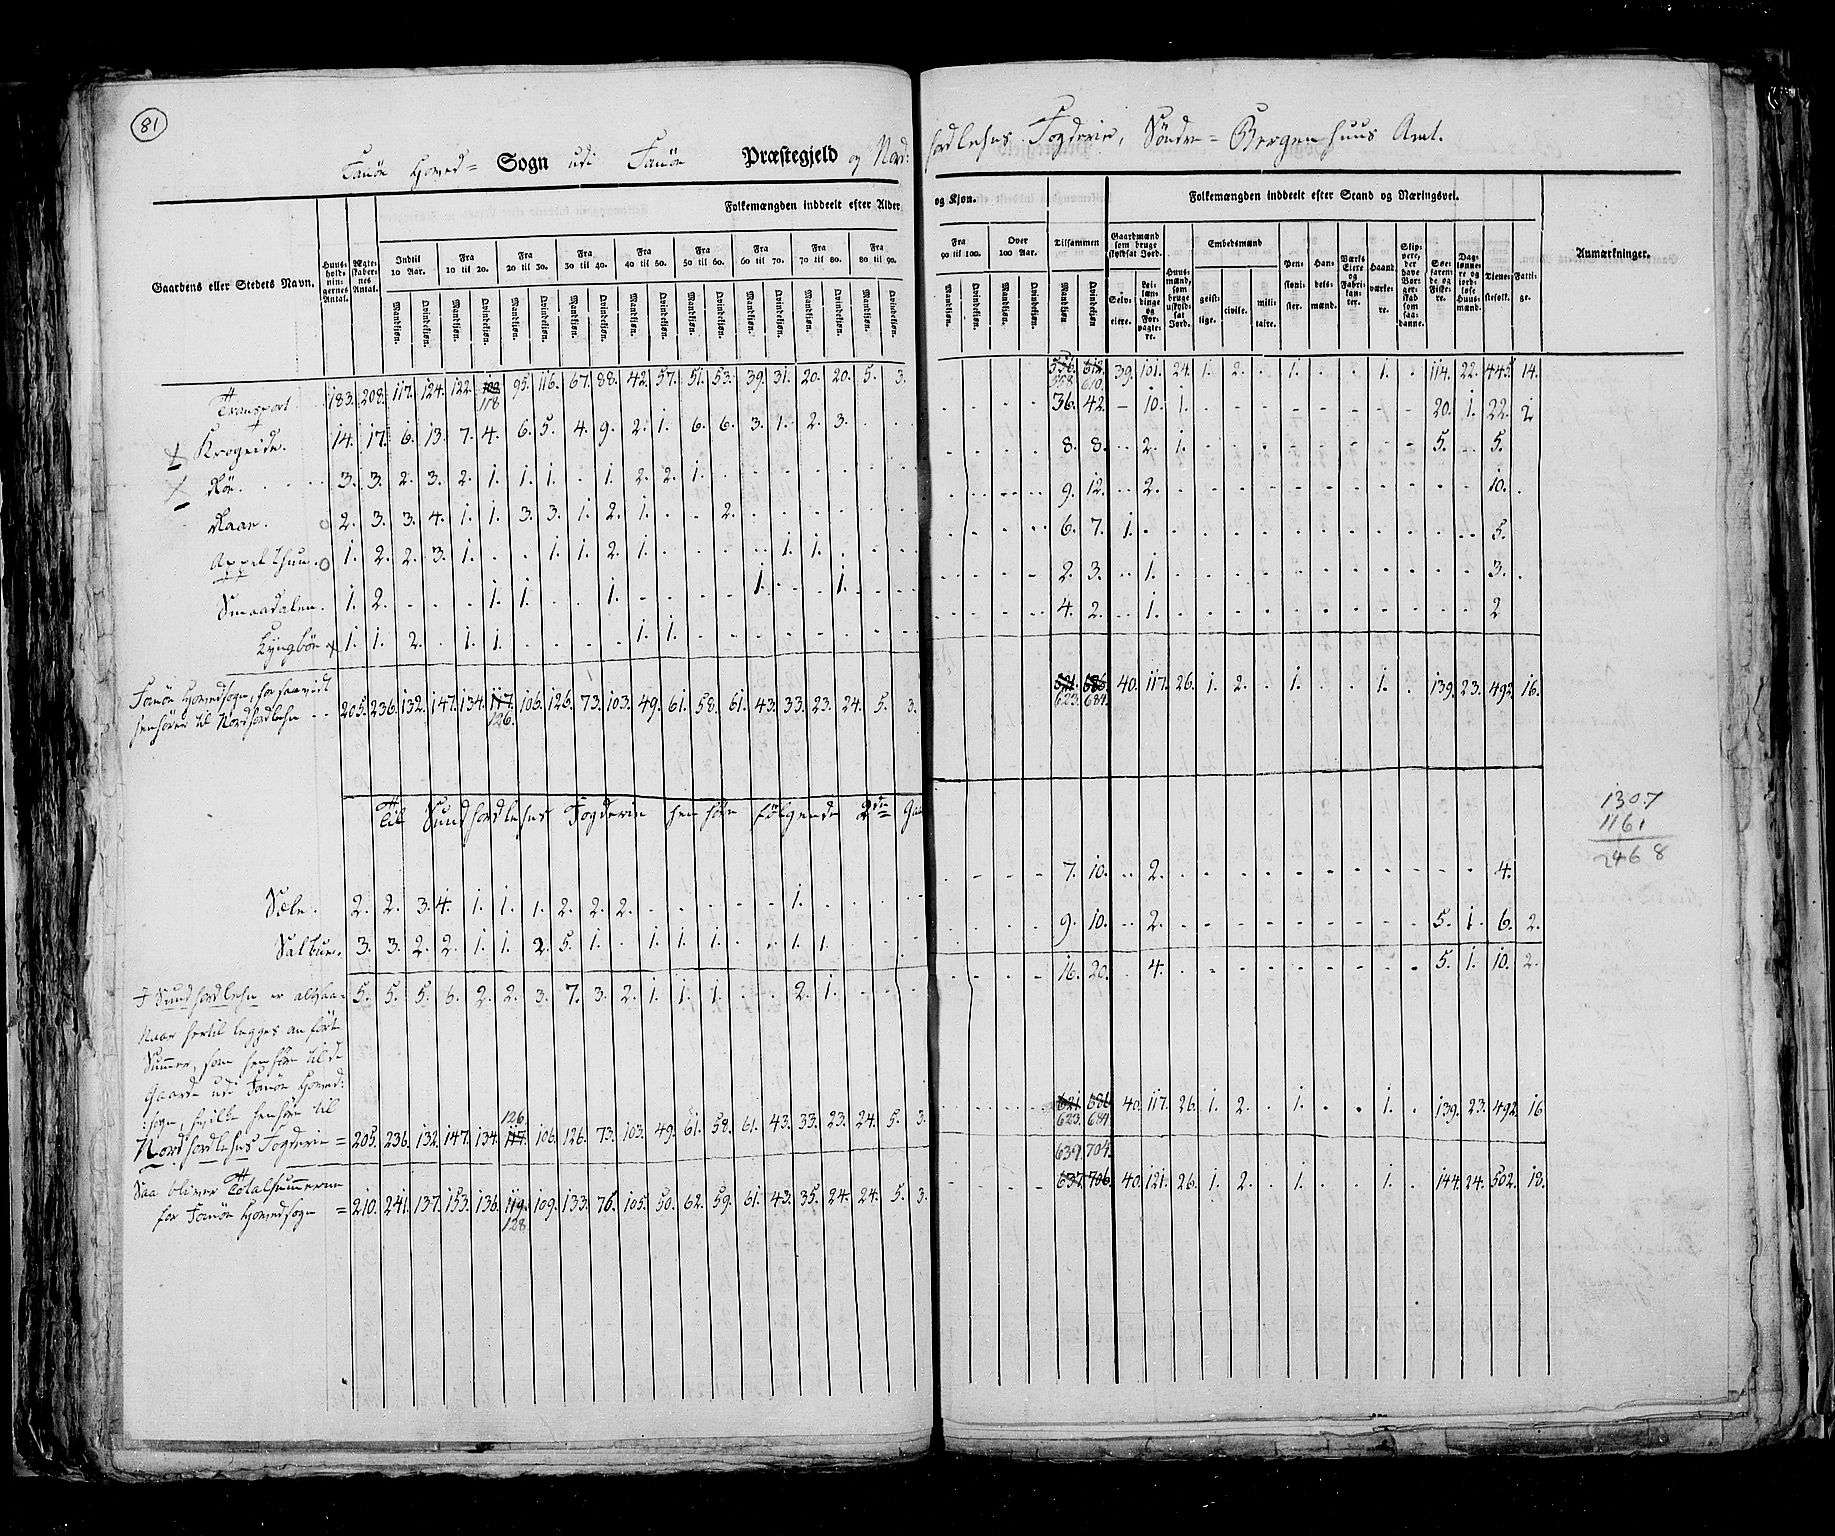 81
Fanöe Hoved= Sogn udi Fanöe Præstegjeld og Nord: hordlehns Fogderie, Söndre= Bergenhuus Amt.
Folkemængden inddeelt efter Alder og Kjøn.
Folkemængden inddeelt efter Stand og Næringsvei.
Gaardens eller Stedets Navn.
Huus= holdningernes Antal.
Ægte= skabernes Antal.
Indtil 10 Aar. Fra 10 til 20. Fra 20 til 30. Fra 30 til 40. Fra 40 til 50. Fra 50 til 60. Fra 60 til 70. Fra 70 til 80. Fra 80 til 90. Fra 90 til 100. Over 100 Aar. Tilsammen
Mandkjøn. Qvindekjøn.
Gaardmænd som bruge skyldsat Jord. Selv= eiere. Lei= lændinge og For= pagtere.
Huus= mænd, som bruge uskyldsat Jord.
Embedsmænd geist= lige. civile. mili= taire.
Pen= sioni= ster.
Han= dels= mænd.
Værks Eiere og Fabri= kan= ter.
Haand= værke= re.
Slip= pere, der have Bor= ger= skab som saa= danne.
Søe= farende og Fiske= re.
Dag= lønnere og jord= løse Huus= mænd.
Tiene= stefolk.
Fatti= ge.
Anmærkninger.
Transport 183. 208. 117. 124. 122. 109 118 95. 116. 67. 88. 42. 57. 51. 53. 39. 31. 20. 20. 5. 3. 556. 612. 558. 610. 39. 101. 24. 1. 2. 1. 1. 114. 22. 445. 14.
Krogeide. 14. 17. 6. 13. 7. 4. 6. 5. 4. 9. 2. 1. 6. 6. 3. 1. 2. 3. 36. 42. 10. 1. 20. 1. 22. 2
Röe. 3. 3. 2. 3. 2. 1. 1. 1. 1. 2. 2. 1. 8. 8. 2. 1. 5. 5.
Raae. 2. 3. 3. 4. 1. 1. 3. 3. 1. 2. 1. 2. 9. 12. 2. 10.
Appelthun. 1. 2. 2. 3. 1. 1. 1. 2. 1. 1. 1. 6. 7. 1. 5.
Smaadalen. 1. 2. 1. 1. 1. 1. 1. 2. 3. 1. 3.
Lyngböe 1. 1. 2. 1. 1. 1. 1. 4. 2. 1. 2
Fanöe Hovedsogn, for saavidt henhører til Nordhordlehn 205. 236. 132. 147. 134. 117. 126. 106. 126. 73. 103. 49. 61. 58. 61. 43. 33. 23. 24. 5. 3. 621. 686. 623. 684. 40. 117. 26. 1. 2. 1. 1. 139. 23. 492. 16.
Til Sundhordlehns Fogderie henhøre følgende 2de Gaa
1307
1161
2468
Sæle. 2. 2. 3. 4. 1. 1. 1. 2. 2. 2. 1. 7. 10. 2. 4.
Salbue. 3. 3. 2. 2. 1. 1. 2. 5. 1. 1. 1. 1. 1. 1. 9. 10. 2. 5. 1. 6. 2.
I Sundhordlehn er altsaa 5. 5. 5. 6. 2. 2. 3. 7. 3. 2. 1. 1. 1. 2. 1. 16. 20. 4. 5. 1. 10. 2.
Naar hertil legges anført
Summer, som henhøre til de
Gaarde udi Fanöe Hoved:
sogn, hvilke henhøre til
Nordhordlehns Fogderie = 205. 236. 132. 147. 134. 126. 117. 106. 126. 73. 103. 49. 61. 58. 61. 43. 33. 23. 24. 5. 3. 621. 686 623. 684. 40. 117. 26. 1. 2. 1. 1. 139. 23. 492. 16
Saa bliver Totalsummerne
for Fanöe Hovedsogn = 210. 241. 137. 153. 136. 119. 128 109. 133. 76. 105. 50. 62. 59. 61. 43. 35. 24. 24. 5. 3. 639. 704. 637. 706. 40. 121. 26. 1. 2. 1. 1. 144. 24. 502. 18.